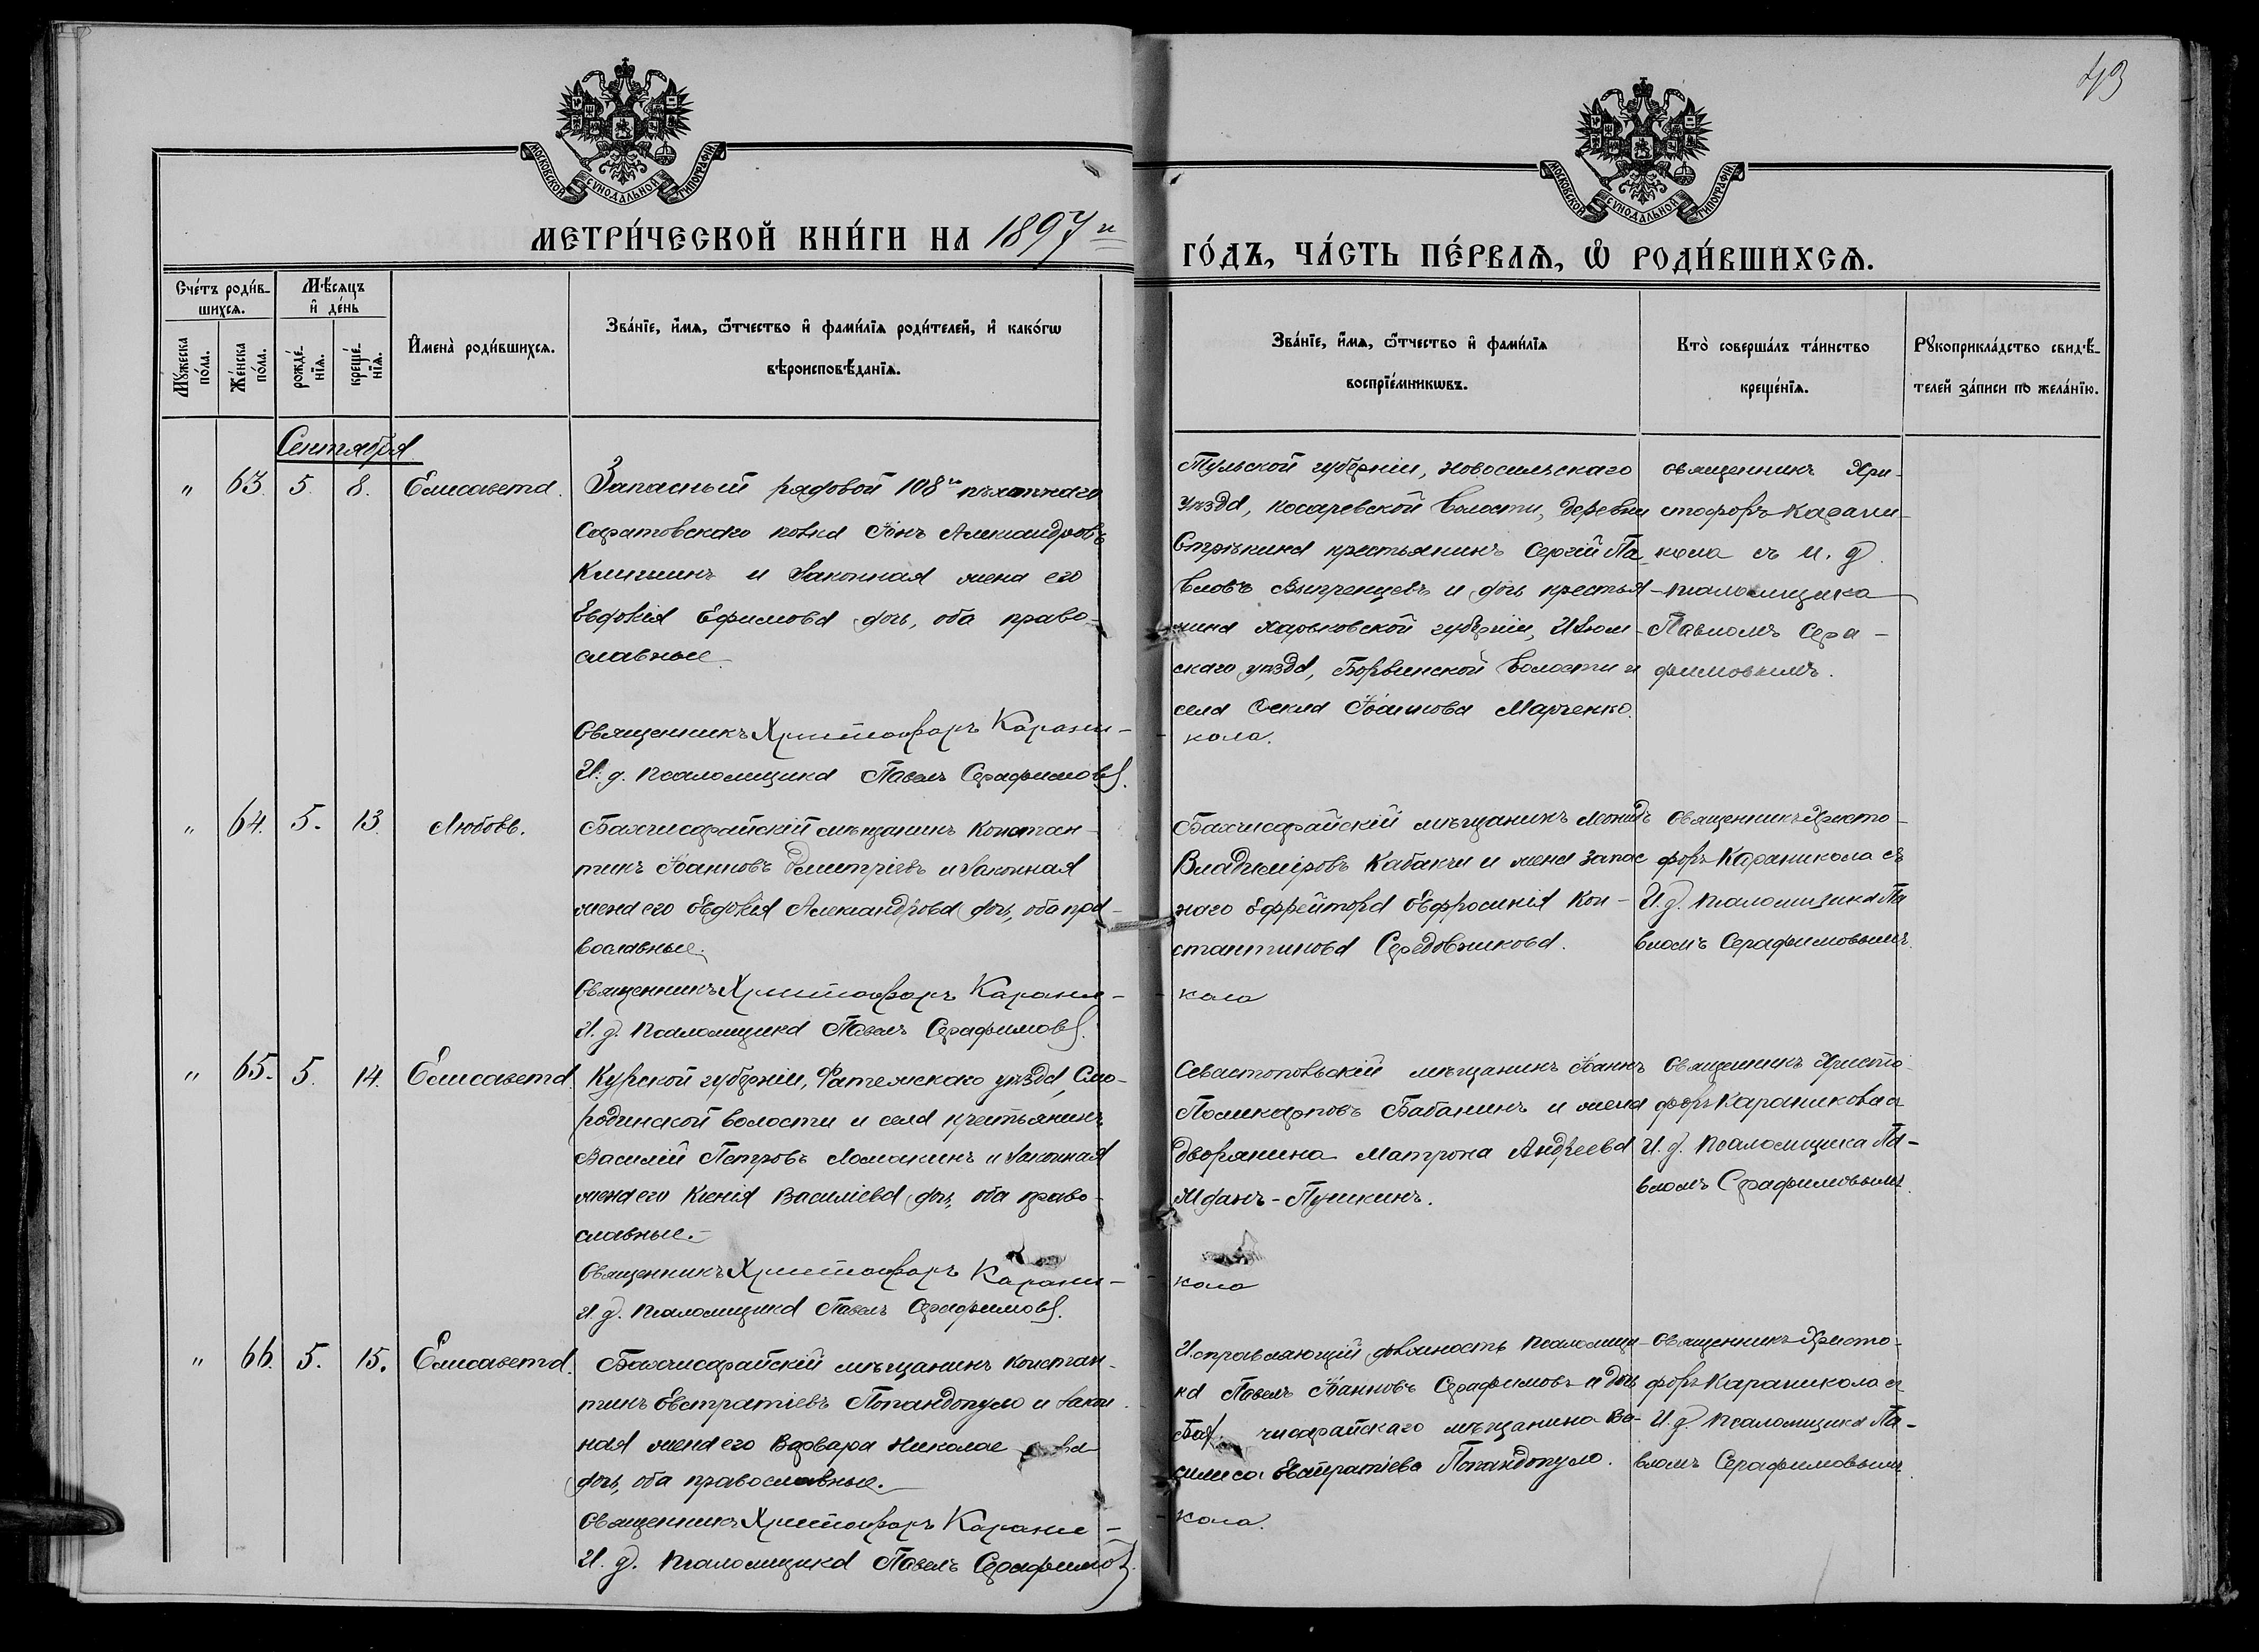 43
МОСКОВСКОЙ СУНОДАЛЬНОЙ ТИПОГРАФІИ
МОСКОВСКОЙ СУНОДАЛЬНОЙ ТИПОГРАФІИ
МЕТРИ́ЧЕСКОЙ КНИ́ГИ НА 1897 й
ГО́ДЪ, ЧА́СТЬ ПЕ́РВАѦ, Ѡ҆ РОДИ́ВШИХСѦ.
Сче́тъ роди́в-
шихсѧ.
Мꙋ́жеска
по́ла.
Же́нска
по́ла.
Мѣ́сѧцъ
и҆ де́нь
рожде́-
нїѧ.
креще́-
нїѧ.
И҆мена̀ роди́вшихсѧ.
Зва́нїе, и҆́мѧ, ѻ҆́тчество и҆ фами́лїѧ роди́телей, и҆ како́гѡ
вѣроисповѣ́данїѧ.
Зва́нїе, и҆́мѧ, ѻ҆́тчество и҆ фами́лїѧ
воспрїе́мникѡвъ.
Кто̀ соверша́лъ та́инство
креще́нїѧ.
Рꙋкоприкла́дство свидѣ́-
телей за́писи по жела́нїю.
Сентября
" 63. 5. 8. Елисавета.
Запасный рядовой 108го пѣхотнаго
Саратовскаго полка Іонъ Александровъ
и законная жена его
Евдокія Ефимова дочь, оба право-
славные.
Священникъ Христофоръ Карани-
кола.
И. д. псаломщика Павелъ Серафимовъ.
Тульской губерніи, Новосильскаго
уѣзда, Косаревской волости, деревни
крестьянинъ Сергій Па-
вловъ и дочь крестья-
нина Харьковской губерніи, Изюм-
скаго уѣзда, волости и
села Іоаннова Марченко.
Священникъ Хри-
стофоръ Карани-
кола съ и. д.
псаломщика
Павломъ Сера-
фимовымъ.
" 64. 5. 13. Любовь.
Бахчисарайскій мѣщанинъ Констан-
тинъ Іоанновъ Дмитріевъ и законная
жена его Евдокія Александрова дочь, оба пра-
вославные.
Священникъ Христофоръ Карани-
кола
И. д. псаломщика Павелъ Серафимовъ.
Бахчисарайскій мѣщанинъ Леонидъ
Владиміровъ Кабакчи и жена запас
наго ефрейтора Евфросинія Кон-
стантинова Середовникова.
Священникъ Христо-
форъ Караникола съ
И. д. псаломщика Па
вломъ Серафимовымъ.
" 65. 5. 14. Елисавета.
Курской губерніи, Фатежскаго уѣзда, Смо-
родинской волости и села крестьянинъ
Василій Петровъ Ломакинъ и законная
жена его Ксенія Василіева дочь, оба право-
славные.-
Священникъ Христофоръ Карани-
кола
И. д. псаломщика Павелъ Серафимовъ.
Севастопольскій мѣщанинъ Іоаннъ
Поликарповъ Бабанинъ и жена
дворянина Матрона Андреева
Жданъ-Пушкинъ.
Священникъ Христо-
форъ Караникола съ
И. д. псаломщика Па-
вломъ Серафимовымъ.
" 66. 5. 15. Елисавета.
Бахчисарайскій мѣщанинъ Констан-
тинъ Евстратіевъ Попандопуло и закон-
ная жена его Варвара Николае ва
дочь, оба православные.
Священникъ Христофоръ Карани-
кола.
И. д. псаломщика Павелъ Серафимовъ.
Исправляющій должность псаломщи-
ка Павелъ Іоанновъ Серафимовъ и дочь
Бах чисарайскаго мѣщанина Ва-
силиса Евстратіева Попандопуло.
Священникъ Христо-
форъ Караникола съ
И. д. псаломщика Па-
вломъ Серафимовымъ.